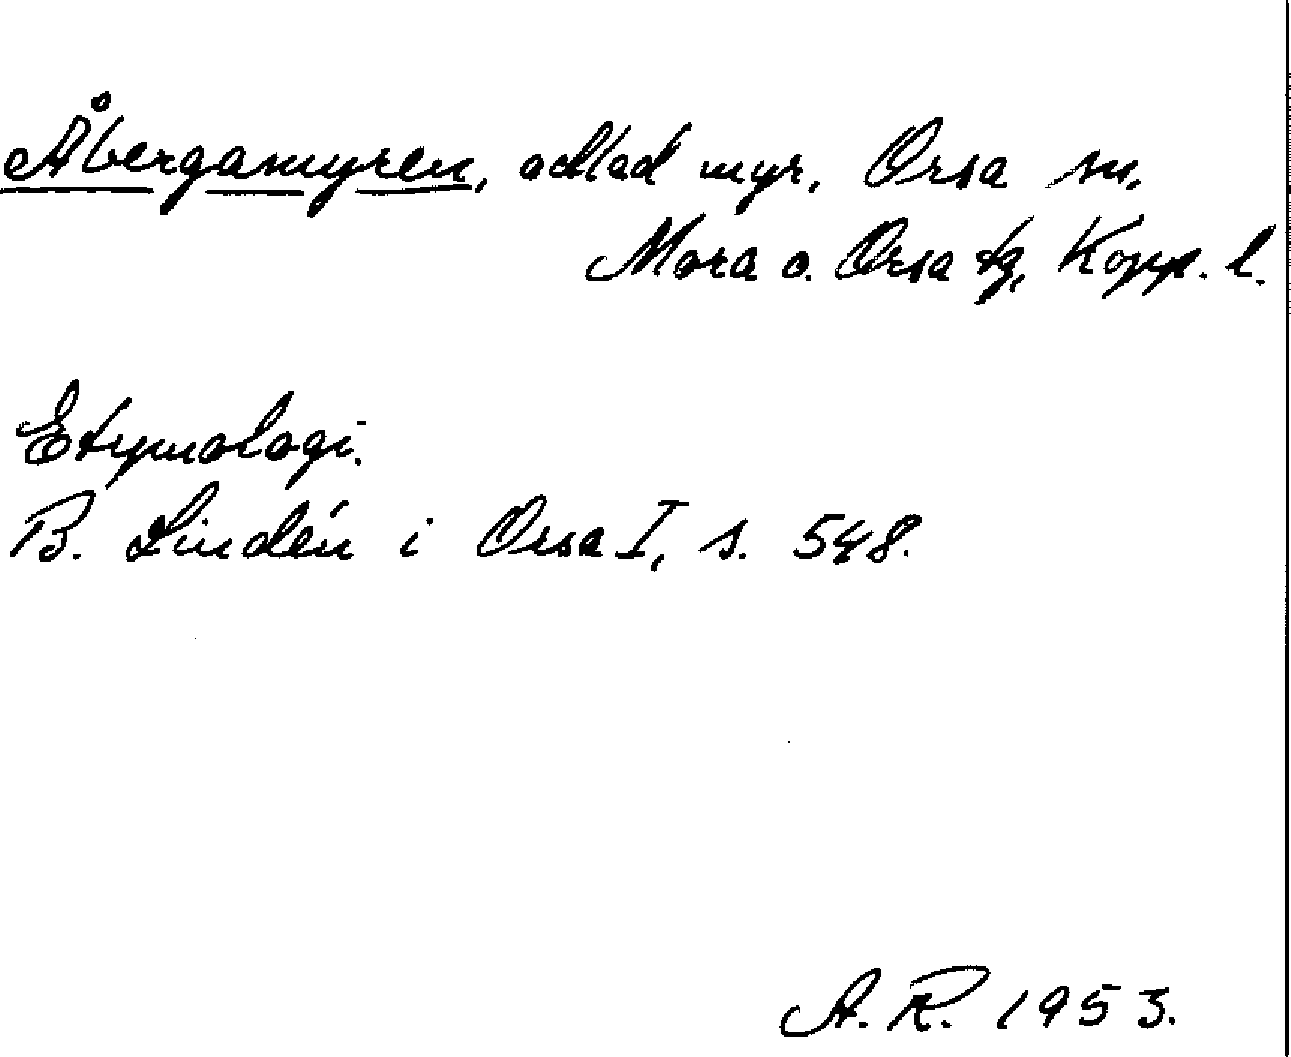 Åbergamyren, odlad myr, Orsa sn,
Mora o. Orsa tg, Kopp. l.
Etymologi.
B. Lindén i Orsa I, s. 548.
A. R. 1953.